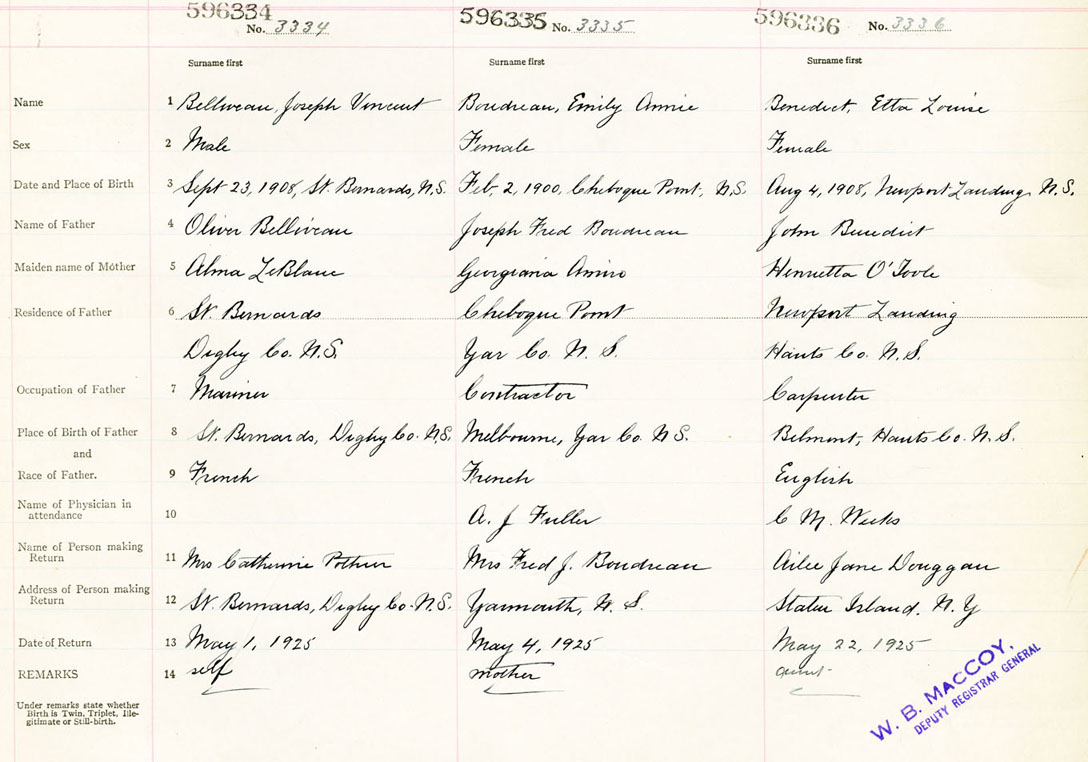 596334 596335 596336
No. 3334 No. 3335 No. 3336
Surname first Surname first Surname first
Name 1 Belliveau, Joseph Vincent Boudreau, Emily Annie Benedict, Etta Louise
Sex 2 Male Female Female
Date and Place of Birth 3 Sept 23, 1908, St. Bernards, N.S. Feb, 2, 1900, Chebogue Point, N.S. Aug 4, 1908, Newport Landing, N.S.
Name of Father 4 Oliver Belliveau Joseph Fred Boudreau John Benedict
Maiden name of Mother 5 Alma LeBlanc Georgiana Amiro Henrietta O'Toole
Residence of Father 6 St. Bernards Chebogue Point Newport Landing
Digby Co. N.S. Yar Co. N. S. Hants Co. N.S.
Occupation of Father 7 Mariner Contractor Carpenter
Place of Birth of Father 8 St. Bernards, Digby Co. N.S. Melbourne, Yar Co. N S. Belmont, Hants Co. N.S.
and
Race of Father. 9 French French English
Name of Physician in
attendance 10 A. J Fuller C M. Weeks
Name of Person making
Return 11 Mrs Catherine Pothier Mrs Fred J. Boudreau Jane Douggan
Address of Person making
Return 12 St. Bernards, Digby Co. N.S. Yarmouth, N. S. Staten Island. N.Y
Date of Return 13 May 1, 1925 May 4, 1925 May 22, 1925
REMARKS 14 self mother aunt
Under remarks state whether
Birth is Twin, Triplet, Ille-
gitimate or Still-birth.
W. B. MACCOY,
DEPUTY REGISTRAR GENERAL